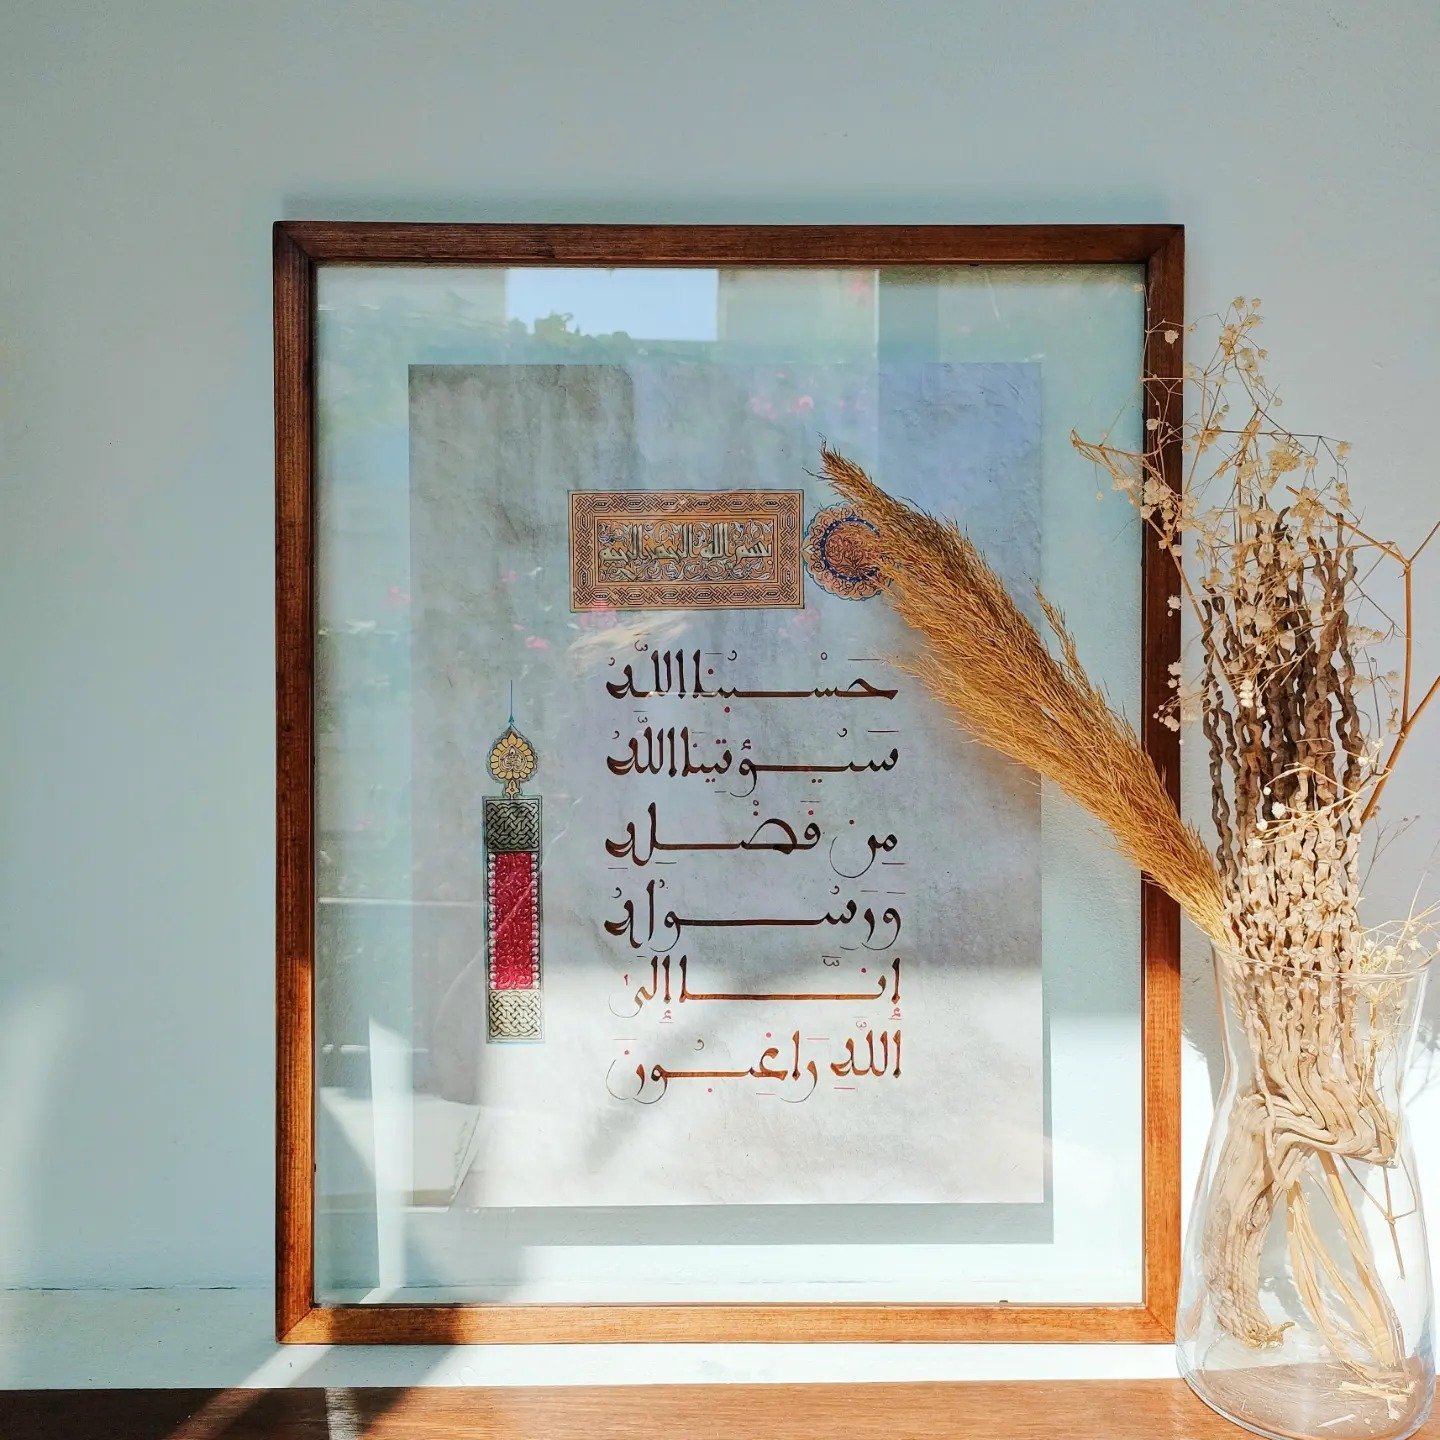 بسم الله الرحمن الرحيم
حَسْبُنَا اللَّهُ
سَيُؤْتِينَا اللَّهُ
مِن فَضْلِهِ
وَرَسُولُهُ
إِنَّا إِلَى
اللَّهِ رَاغِبُونَ